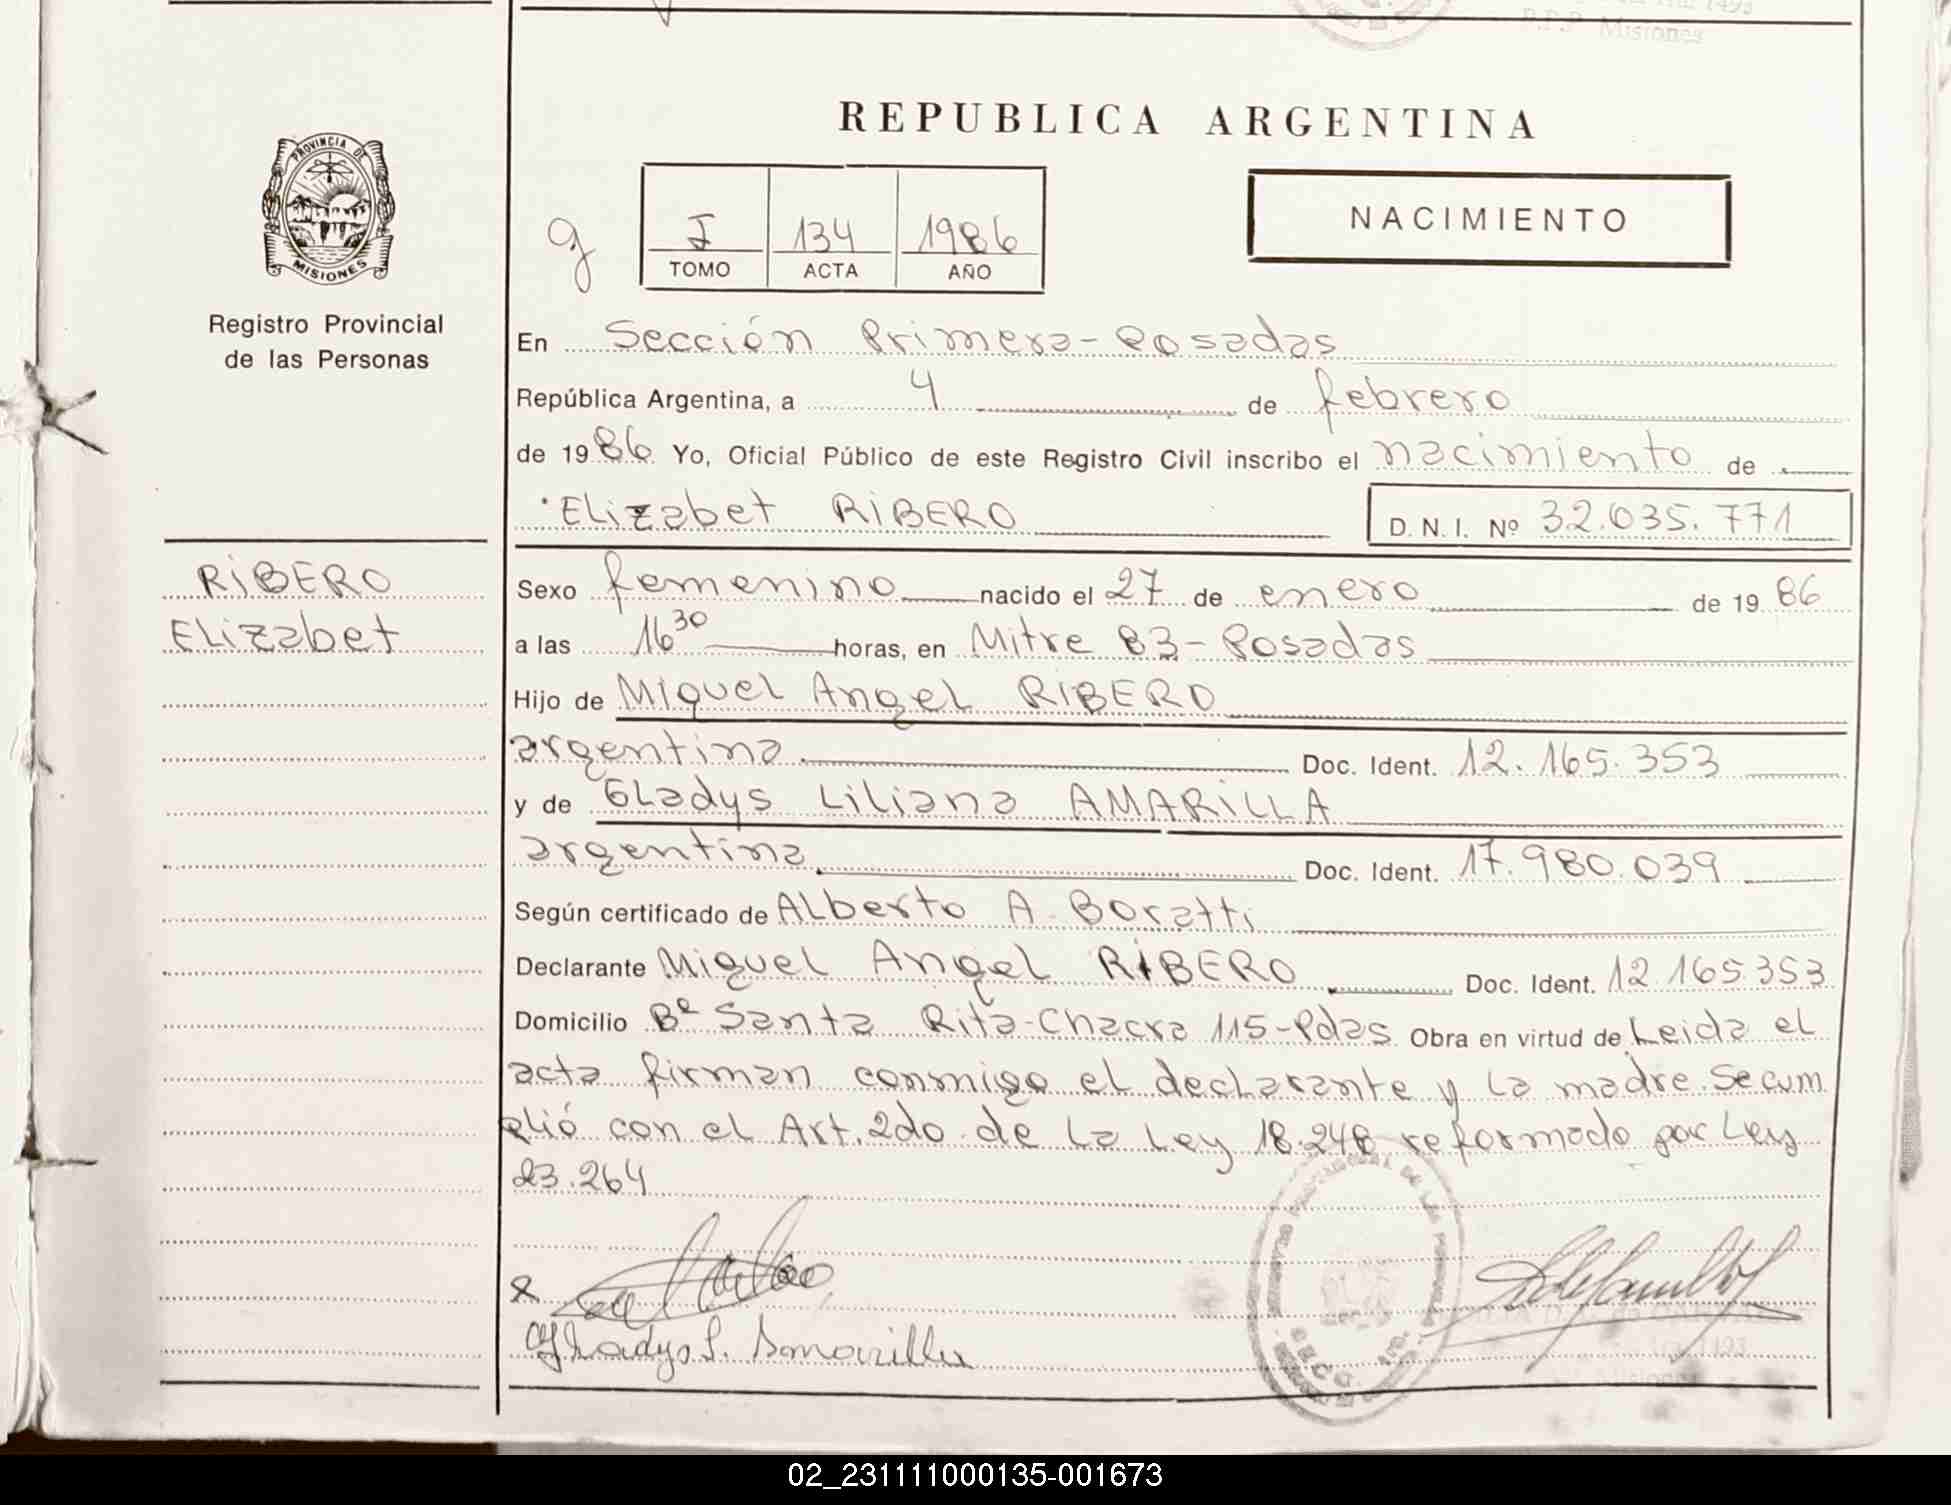 P.E.P. Misiones
REPUBLICA ARGENTINA
PROVINCIA DE
MISIONES
Registro Provincial
de las Personas
g
I 134 1986
TOMO ACTA AÑO
NACIMIENTO
En Sección Primera - Posadas
República Argentina, a 4 de febrero
de 1986 Yo, Oficial Público de este Registro Civil inscribo el nacimiento de
Elizabet RIBERO D.N.I. Nº 32.035.771
RIBERO
Elizabet
Sexo femenino nacido el 27 de enero de 1986
a las 16 30 horas, en Mitre 83 - Posadas
Hijo de Miguel Angel RIBERO
argentina Doc. Ident. 12.165.353
y de Gladys Liliana AMARILLA
argentina Doc. Ident. 17.980.039
Según certificado de Alberto A. Boratti
Declarante Miguel Angel RIBERO Doc. Ident. 12.165.353
Domicilio Bº Santa Rita - Chacra 115 - Pdas Obra en virtud de Leida el
acta firman conmigo el declarante y la madre. Se cum
plió con el Art. 2do. de la Ley 18.248 reformado por Ley
23.264
x
Gladys L. Amarilla
02_231111000135-001673